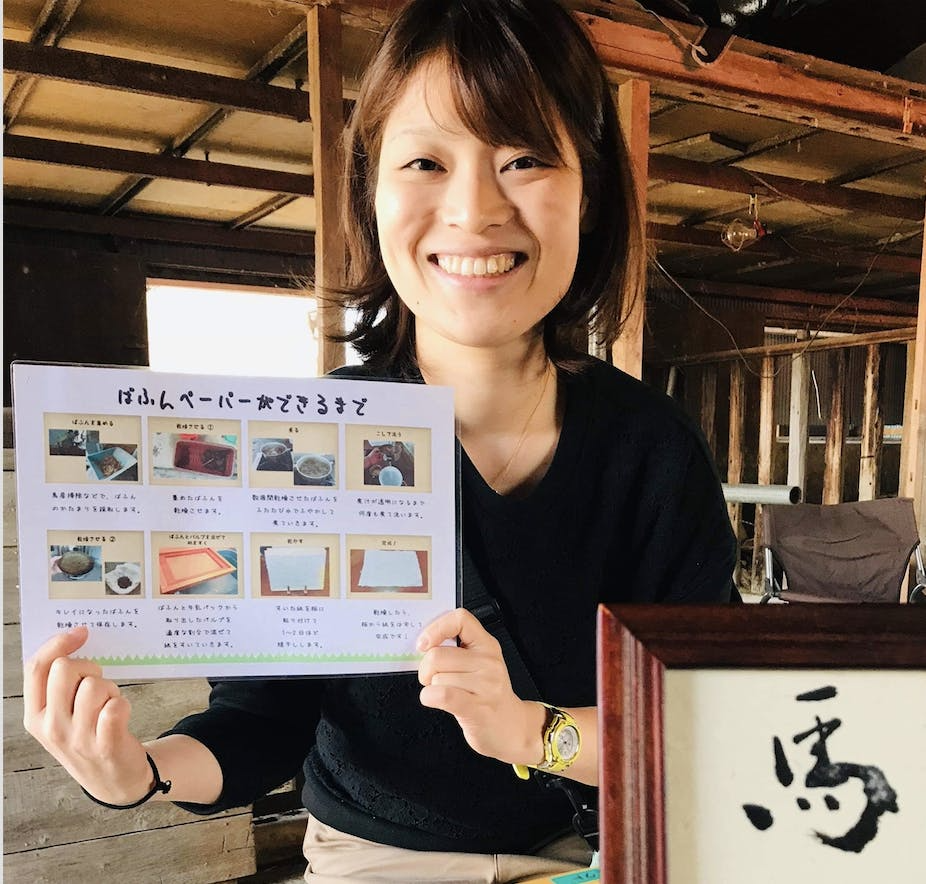 ばふんペーパーができるまで
ばふんを集める
乾燥させる①
煮る
こして洗う
馬房掃除などで、ばふん
のかたまりを採取します。
集めたばふんを
乾燥させます。
数週間乾燥させたばふんを
ふたたび水でふやかして
煮ていきます。
煮汁が透明になるまで
何度も煮て洗います。
乾燥させる②
ばふんとパルプを混ぜて
紙をすく
乾かす
完成!
キレイになったばふんを
乾燥させて保存します。
ばふんと牛乳パックから
取り出したパルプを
適度な割合で混ぜて
紙をすいていきます。
すいた紙を板に
貼り付けて
1〜2日ほど
陰干しします。
乾燥したら、
板から紙をはがして
完成です!
馬